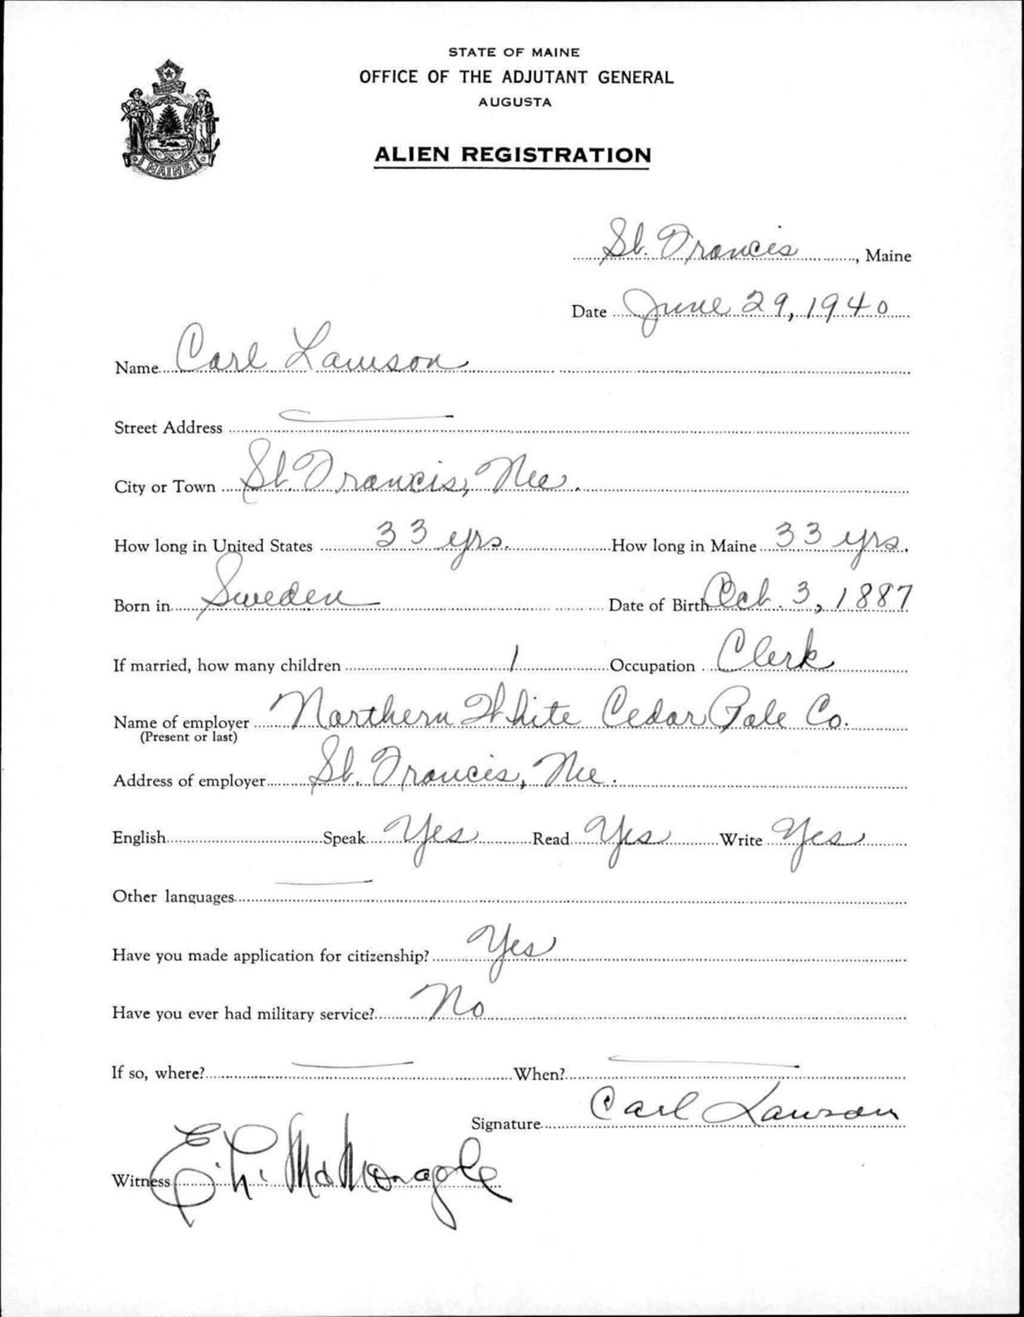 STATE OF MAINE
OFFICE OF THE ADJUTANT GENERAL
AUGUSTA
ALIEN REGISTRATION
MAINE
St. Francis, Maine
Date June 29, 1940
Name Carl Lawson
Street Address
City or Town St. Francis, Me.
How long in United States 33 yrs. How long in Maine 33 yrs.
Born in Sweden Date of Birth Oct. 3, 1887
If married, how many children 1 Occupation Clerk
Name of employer Northern White Cedar Pole Co.
(Present or last)
Address of employer St. Francis, Me.
English Speak Yes Read Yes Write Yes
Other languages
Have you made application for citizenship? Yes
Have you ever had military service? No
If so, where? When?
Signature Carl Lawson
Witness E. L. McMonagle